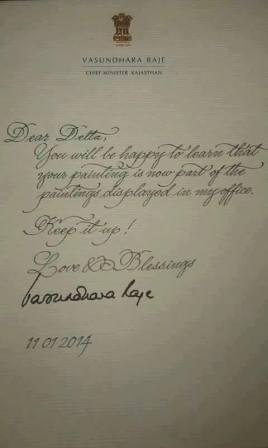 VASUNDHARA RAJE
CHIEF MINISTER RAJASTHAN
Dear Detta,
You will be happy to learn that
your painting is now part of the
paintings displayed in my office.
Keep it up!
Love & Blessings
Vasundhara Raje
11 01 2014